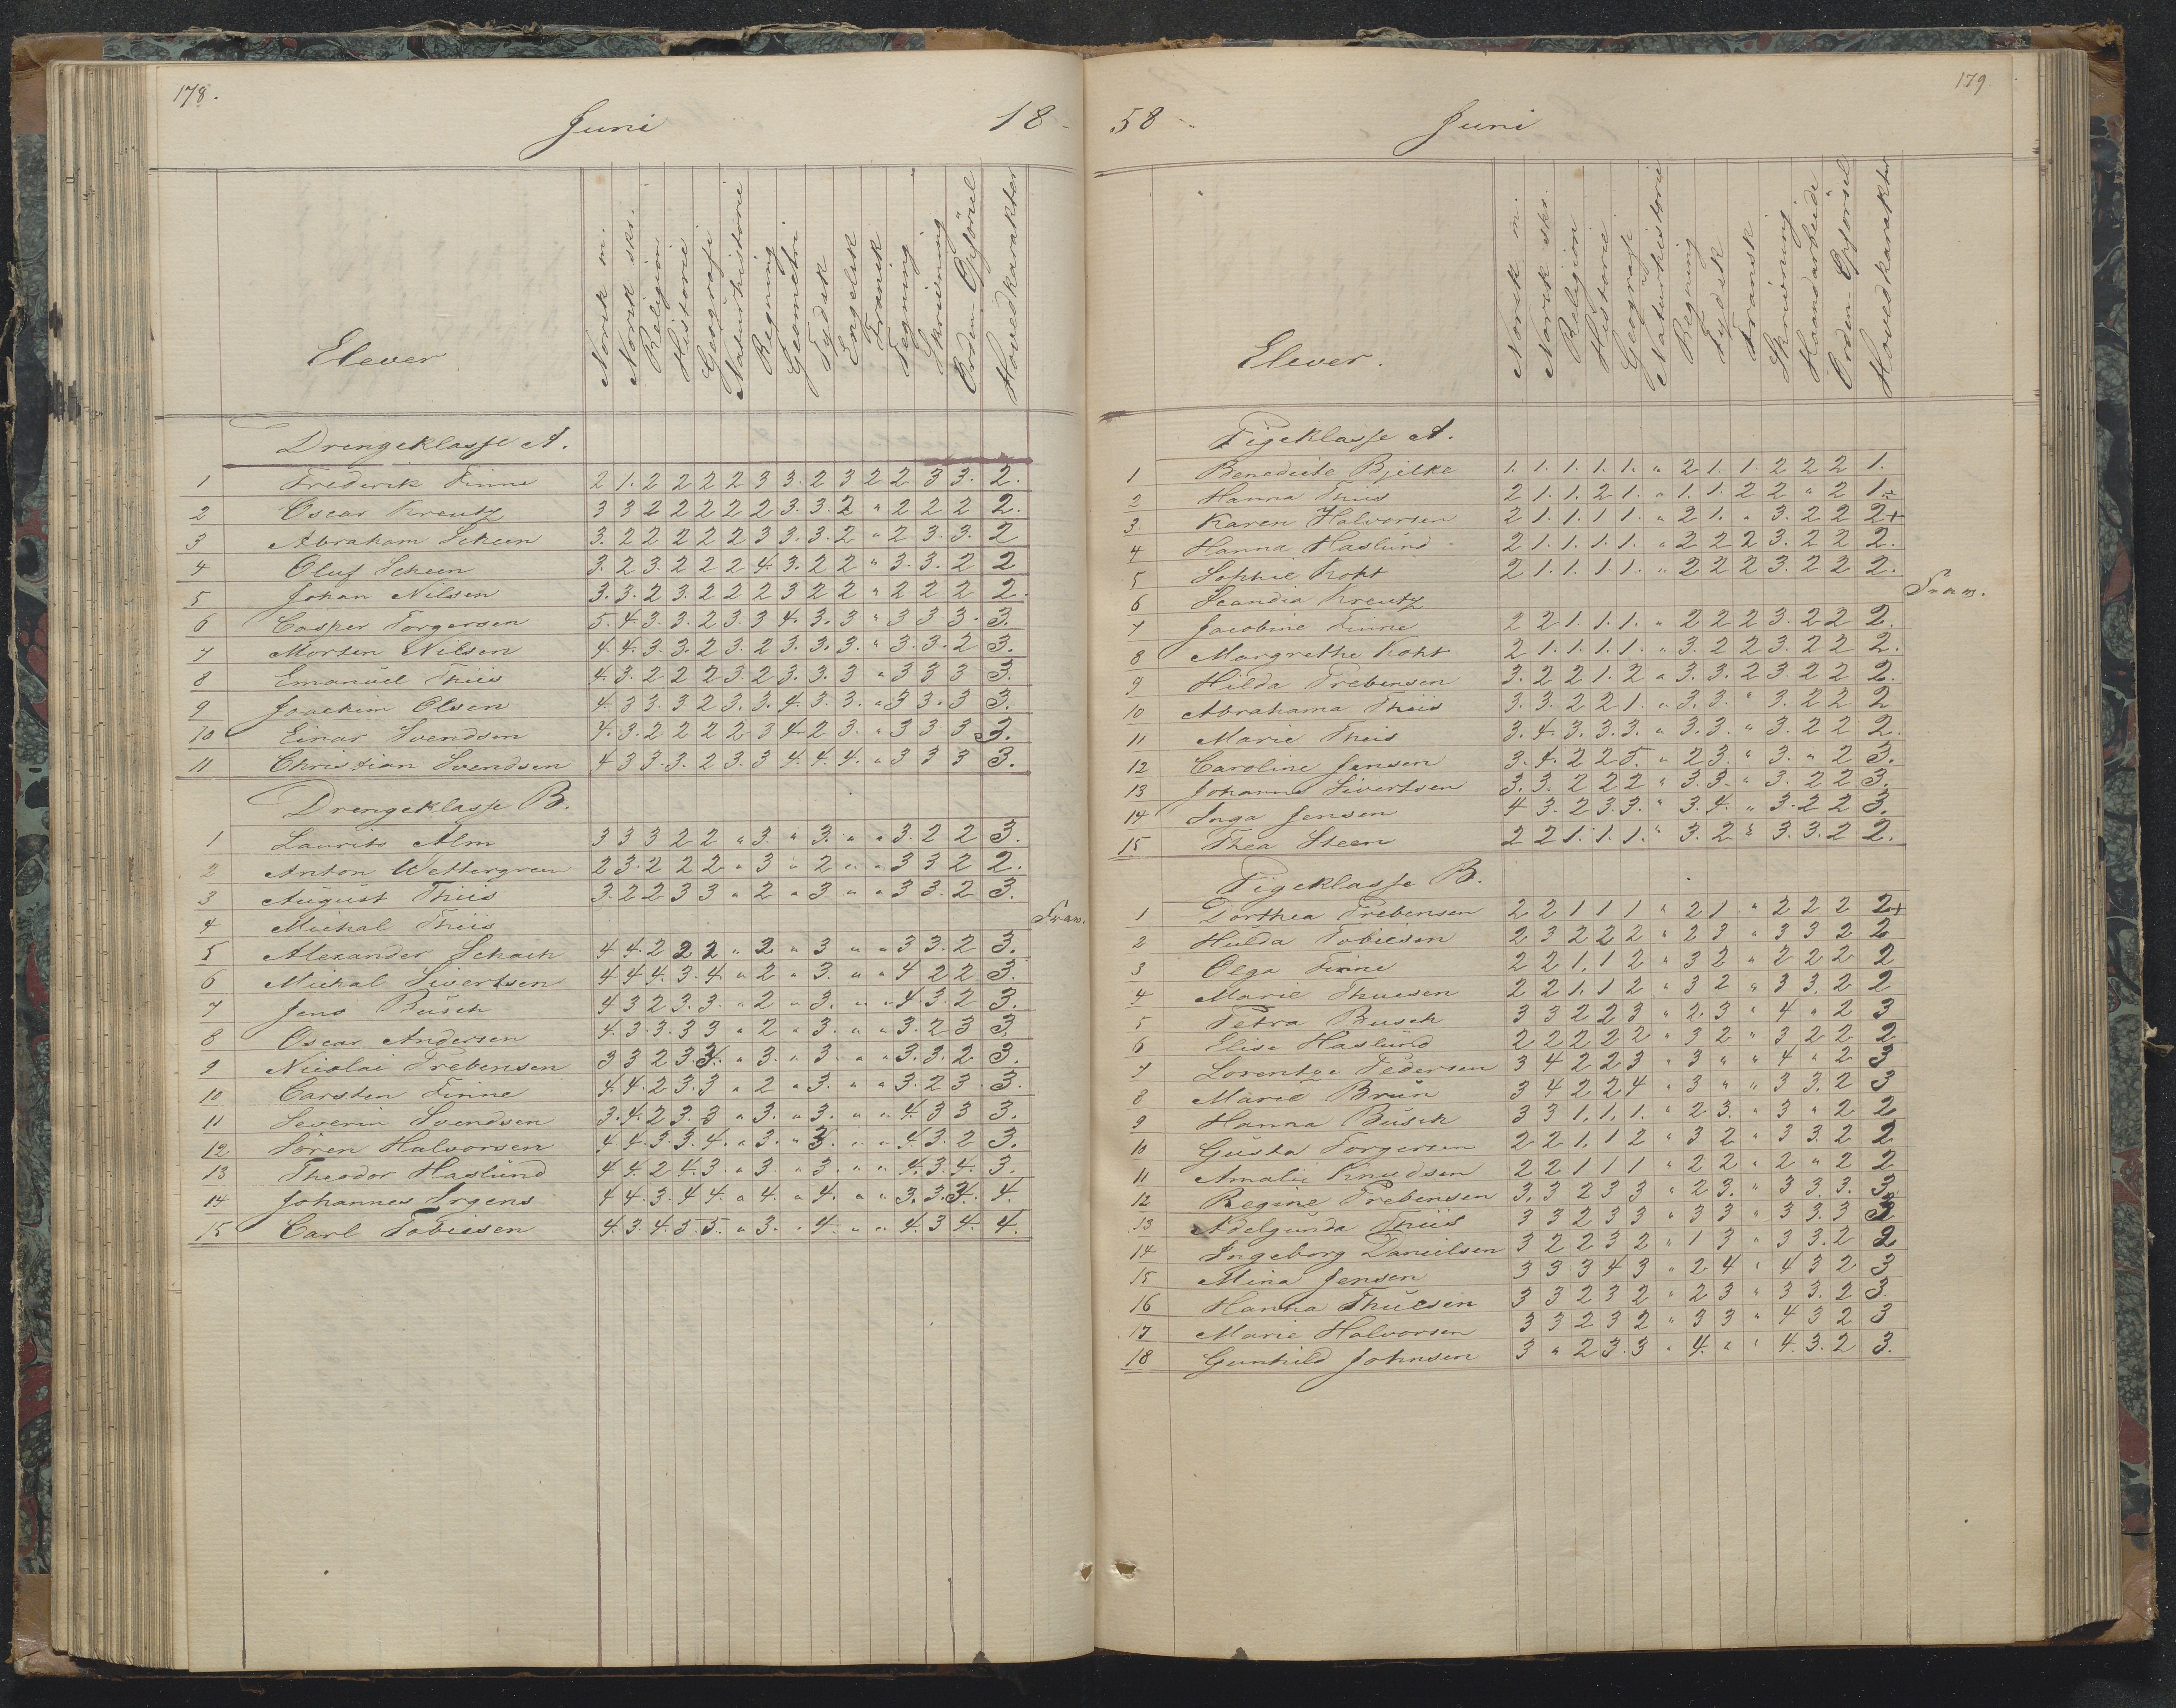 178.
Juni 18-
Elever Norsk m. Norsk skr. Religion Historie Geografi Naturhistorie Regning Geometri Tydsk Engelsk Fransk Tegning Skrivning Orden Opførsel Hovedkarakter
Drengeklasse A.
1 Frederik Finne 2 1. 2 2 2 2 3 3. 2 3 2 2 3 3. 2.
2 Oscar Kreutz 3 3 2 2 2 2 2 3. 3. 2 " 2 2 2 2.
3 Abraham Scheen 3. 2 2 2 2 2 3 3. 3. 2 " 2 3. 3. 2
4 Oluf Scheen 3. 2 3. 2 2 2 4. 3. 2 2 " 3. 3. 2 2
5 Johan Nilsen 3. 3. 2 3. 2 2 2 3 2 2 " 2 2 2 2.
6 Casper Torgersen 5. 4 3. 3. 2 3. 3 4. 3. 3 " 3 3 3. 3.
7 Morten Nilsen 4. 4. 3. 3. 2 3. 2 3. 3. 3. " 3. 3. 2 3.
8 Emanuel Thiis 4. 3. 2 2 2 3. 2 3. 3. 3 " 3 3 3 3.
9 Joachim Olsen 4. 3 3. 3 2 3. 3. 4. 3. 3. " 3 3. 3 3.
10 Einar Svendsen 4. 3. 2 2 2 2 3 4. 2 3. " 3 3 3 3.
11 Christian Svendsen 4 3 3. 3. 2 3. 3 4. 4. 4. " 3 3 3 3.
Drengeklasse B.
1 Laurits Alm 3 3 3 2 2 " 3. " 3. " " 3. 2 2 3.
2 Anton Wettergreen 2 3. 2 2 2 " 3 " 2 " " 3 3 2 2.
3 August Thiis 3. 2 2 3 3 " 2 " 3 " " 3 3. 2 3.
4 Michal Thiis Frav.
5 Alexander Schach 4 4. 2 2 2 " 2 " 3 " " 3 3. 2 3.
6 Michal Sivertsen 4 4 4. 3. 4. " 2 " 3. " " 4 2 2 3.
7 Jens Busch 4 3 2 3. 3. " 2 " 3. " " 4. 3. 2 3.
8 Oscar Andersen 4. 3. 3. 3 3 " 2 " 3. " " 3. 2 3 3
9 Nicolai Prebensen 3 3 2 3. 4. " 3. " 3. " " 3. 3. 2 3.
10 Carsten Finne 4. 4. 2 3. 3 " 2 " 3. " " 3. 2 3. 3.
11 Severin Svendsen 3. 4. 2 3. 3 " 3. " 3. " " 4. 3 3 3.
12 Sören Halvorsen 4 4. 3. 3. 4. " 3. " 3. " " 4. 3. 2 3.
13 Theodor Haslund 4 4. 2 4. 3. " 3. " 3. " " 4. 3. 4. 3.
14 Johannes Irgens 4 4. 3. 4 4. " 4. " 4. " " 3. 3. 4. 4.
15 Carl Tobiesen 4. 3. 4. 5 5. " 3. " 4. " " 4. 3 4. 4.
179
58 Juni
Elever. Norsk m. Norsk skr. Religion Historie Geografi Naturhistorie Regning Tydsk Fransk Skrivning Haandarbeide Orden Opførsel Hovedkarakter
Pigeklasse A.
1 Benedicte Bjelke 1. 1. 1. 1. 1. " 2 1. 1. 2 2 2 1.
2 Hanna Thiis 2 1. 1. 2 1. " 1. 1. 2 2 " 2 1.
3 Karen Halvorsen 2 1. 1. 1 1. " 2 1. " 3. 2 2 2+
4 Hanna Haslund 2 1. 1. 1. 1. " 2 2 2 3. 2 2 2.
5 Sophie Koht 2 1. 1. 1 1. " 2 2 2 3. 2 2 2.
6 Scandia Kreutz Frav.
7 Jacobine Finne 2 2 1. 1. 1. " 2 2 2 3. 2 2 2.
8 Margrethe Koht 2 1. 1. 1. 1. " 3. 2 2 3. 2 2 2.
9 Hilda Prebensen 3. 2 2 1. 2 " 3. 3. 2 3. 2 2 2.
10 Abrahama Thiis 3. 3. 2 2 1. " 3. 3. " 3. 2 2 2
11 Marie Thiis 3. 4. 3. 3. 3. " 3. 3. " 3. 2 2 2.
12 Caroline Jensen 3. 4. 2 2 5. " 2 3. " 3. " 2 3.
13 Johanne Sivertsen 3. 3. 2 2 2 " 3. 3. " 3. 2 2 3.
14 Inga Jensen 4 3. 2 3. 3. " 3. 4. " 3. 2 2 3.
15 Thea Steen 2 2 1. 1. 1. " 3. 2 " 3. 3. 2 2.
Pigeklasse B.
1 Dorthea Prebensen 2 2 1 1 1 " 2 1 " 2 2 2 2+
2 Hulda Tobiesen 2 3 2 2 2 " 2 3 " 3 3 2 2
3 Olga Finne 2 2 1. 1 2 " 3 2 " 2 2 2 2
4 Marie Thuesen 2 2 1. 1 2 " 3 2 " 3 3. 2 2
5 Petra Busch 3 3 2 2 3 " 2. 3 " 4 " 2 3
6 Elise Haslund 2 2 2 2 2 " 3 2 " 3 2 2 2
7 Lorentze Pedersen 3 4 2 2 3 " 3 " " 4 " 2 3
8 Marie Brun 3 4 2 2 4 " 3 " " 3 3. 2 3
9 Hanna Busch 3 3 1. 1. 1. " 2 3. " 3 " 2 2
10 Gusta Torgersen 2 2 1. 1 2 " 3 2 " 3 3. 2 2
11 Amalie Knudsen 2 2 1 1 1 " 2 2 " 2 " 2 2
12 Regine Prebensen 3. 3 2 3 3 " 2 3. " 3 3. 3. 3
13 Adelgunda Thiis 3 3 2 3 3 " 3 3 " 3 3. 3
14 Ingeborg Danielsen 3 2 2 3 2 " 1 3 " 3 3. 2 2
15 Mina Jensen 3 3 3 4 3 " 2 4 " 4 3 2 3
16 Hanna Thuesen 3 3 2 3 2 " 2 3 " 3 3. 2 3.
17 Marie Halvorsen 3 3 2 3 2 " 3 3 " 4 3 2 3
18 Gunhild Johnsen 3 " 2 3. 3 " 4. " " 4. 3. 2 3.